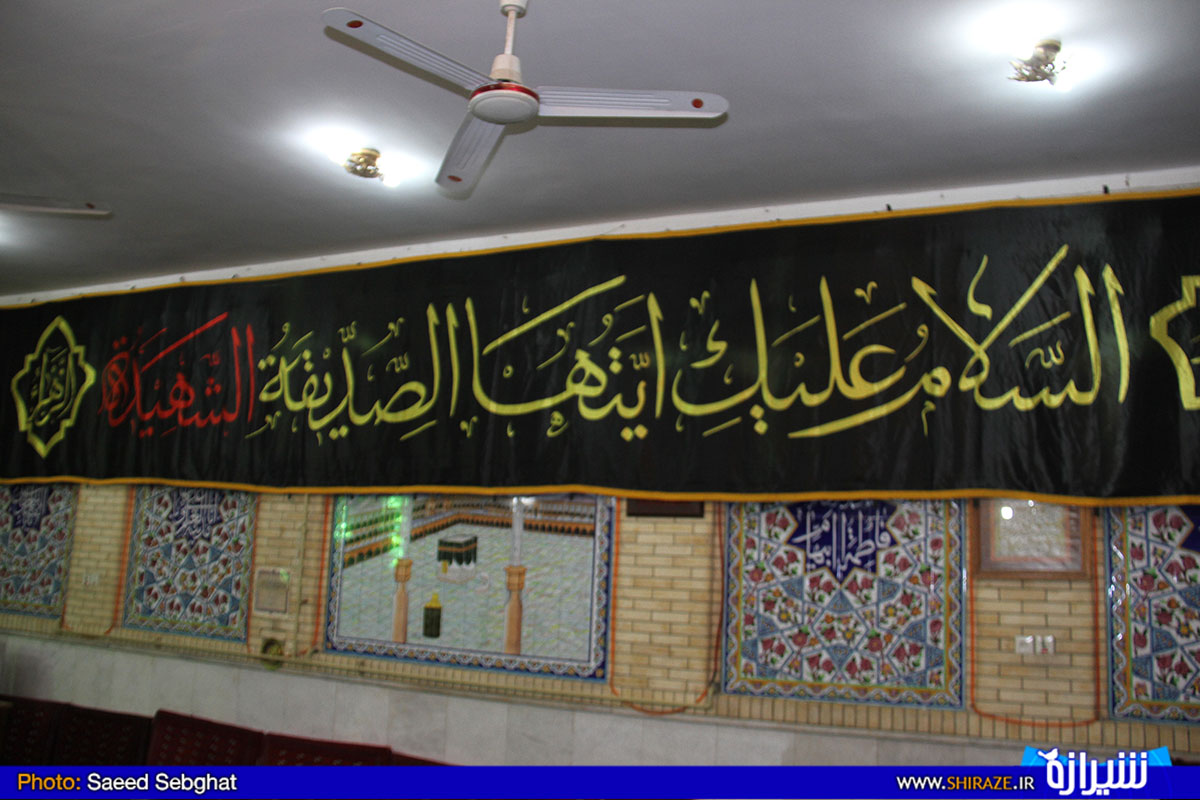 السَّلامُ عَلَيكِ ايَّتُهَا الصِّدّيقَةُ الشَّهيدَة
الزهراء
فاطمة
Photo: Saeed Sebghat
WWW.SHIRAZE.IR شیرازه